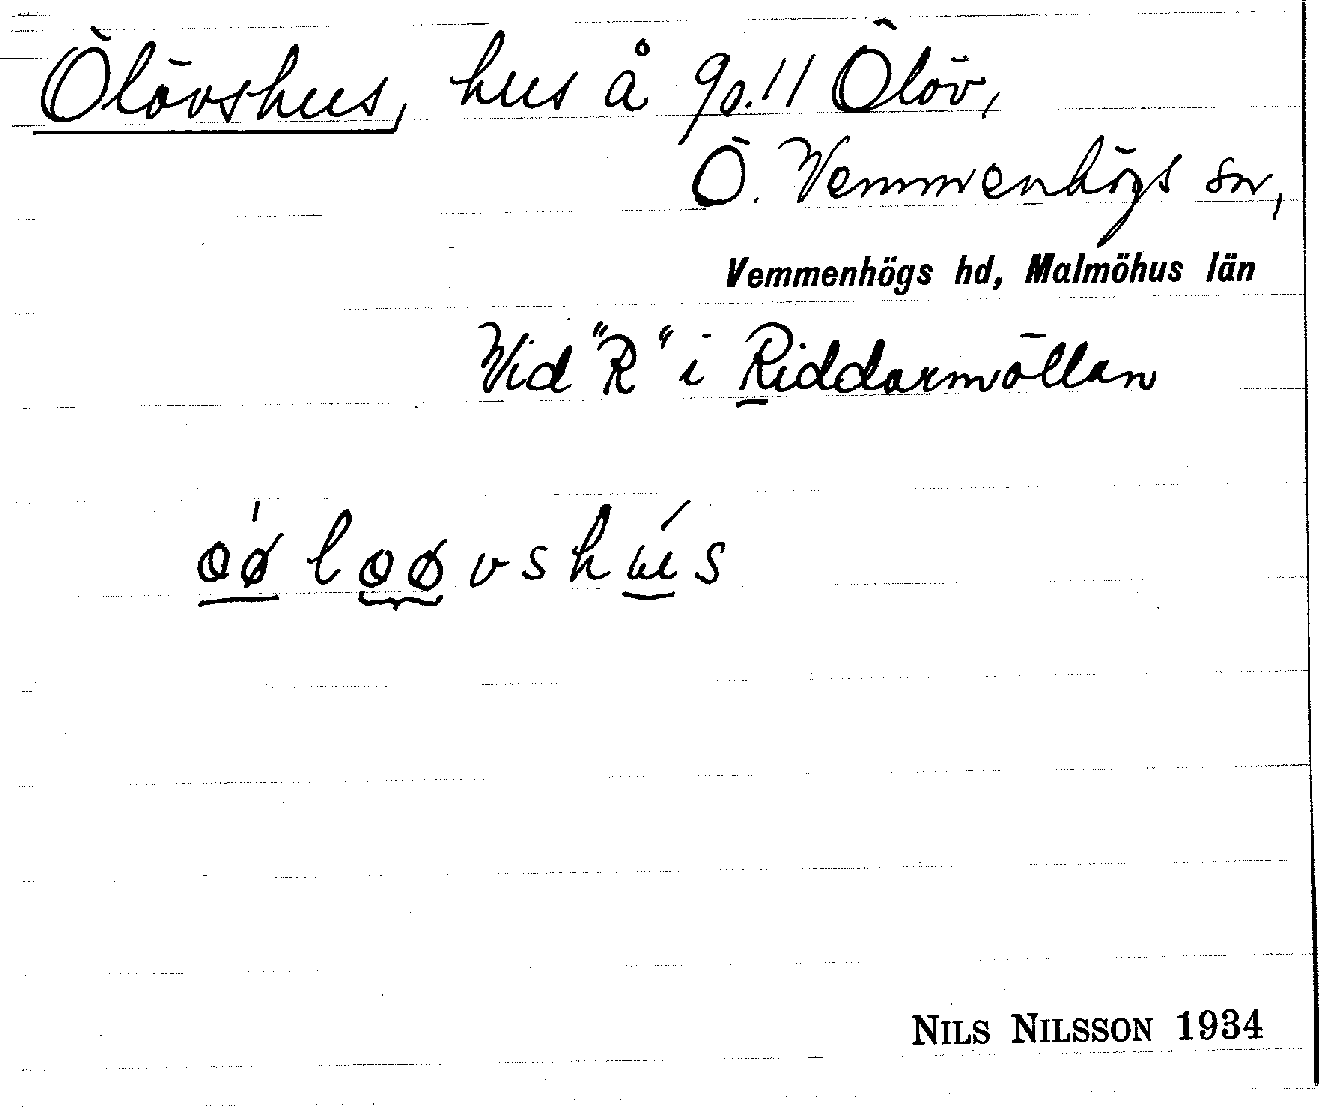 Ölövshus, hus å go. 11 Ölöv,
Ö. Vemmenhögs sn,
Vemmenhögs hd, Malmöhus län
Vid "R" i Riddarmöllan
oǿløøvshús
NILS NILSSON 1934